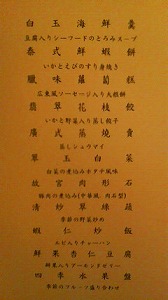 白玉海鮮羹
豆腐入りシーフードのとろみスープ
泰式鮮蝦餅
いかとえびのすり身焼き
臘味蘿蔔糕
広東風ソーセージ入り大根餅
翡翠花枝餃
いかと野菜入り蒸し餃子
廣式蒸燒賣
蒸しシュウマイ
翠玉白菜
白菜の煮込みホタテ風味
故宮肉形石
豚肉の煮込み(中華風、肉石型)
清炒翠綠蔬
季節の野菜炒め
蝦仁炒飯
エビ入りチャーハン
鮮果杏仁豆腐
鮮果入りアーモンドゼリー
四季水果盤
季節のフルーツ盛り合わせ